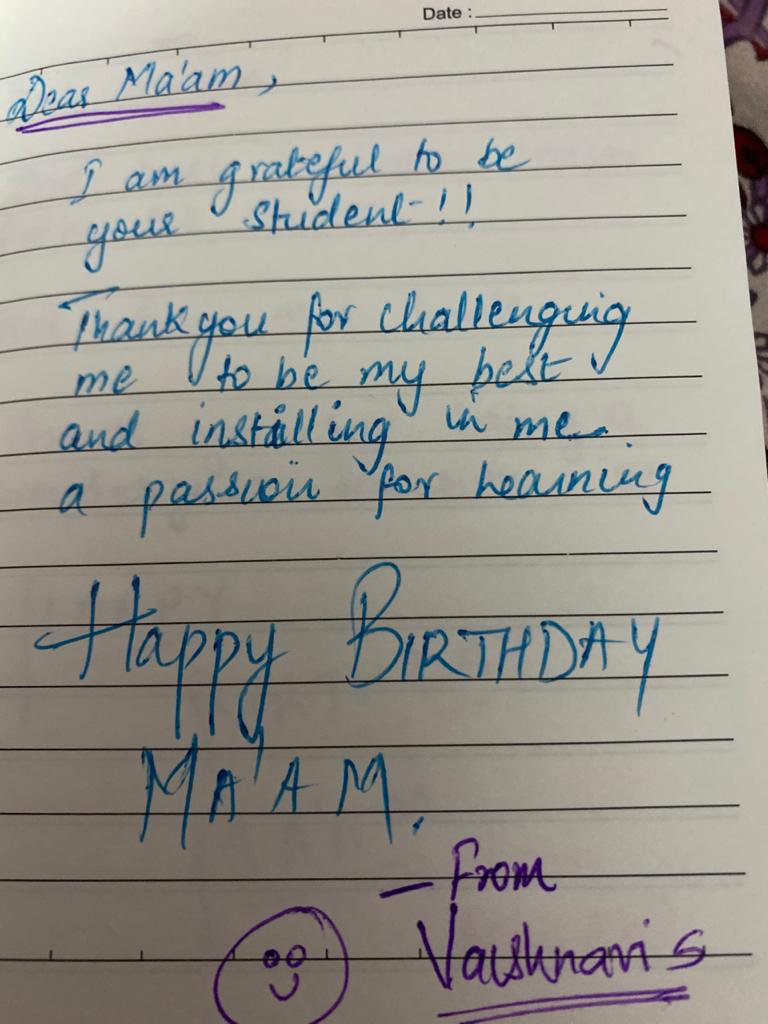 Date :
Dear Ma'am,
I am grateful to be
your student!!
Thank you for challenging
me to be my best
and installing in me
a passion for learning
Happy BIRTHDAY
MA'AM.
- From
Vaishnavi S